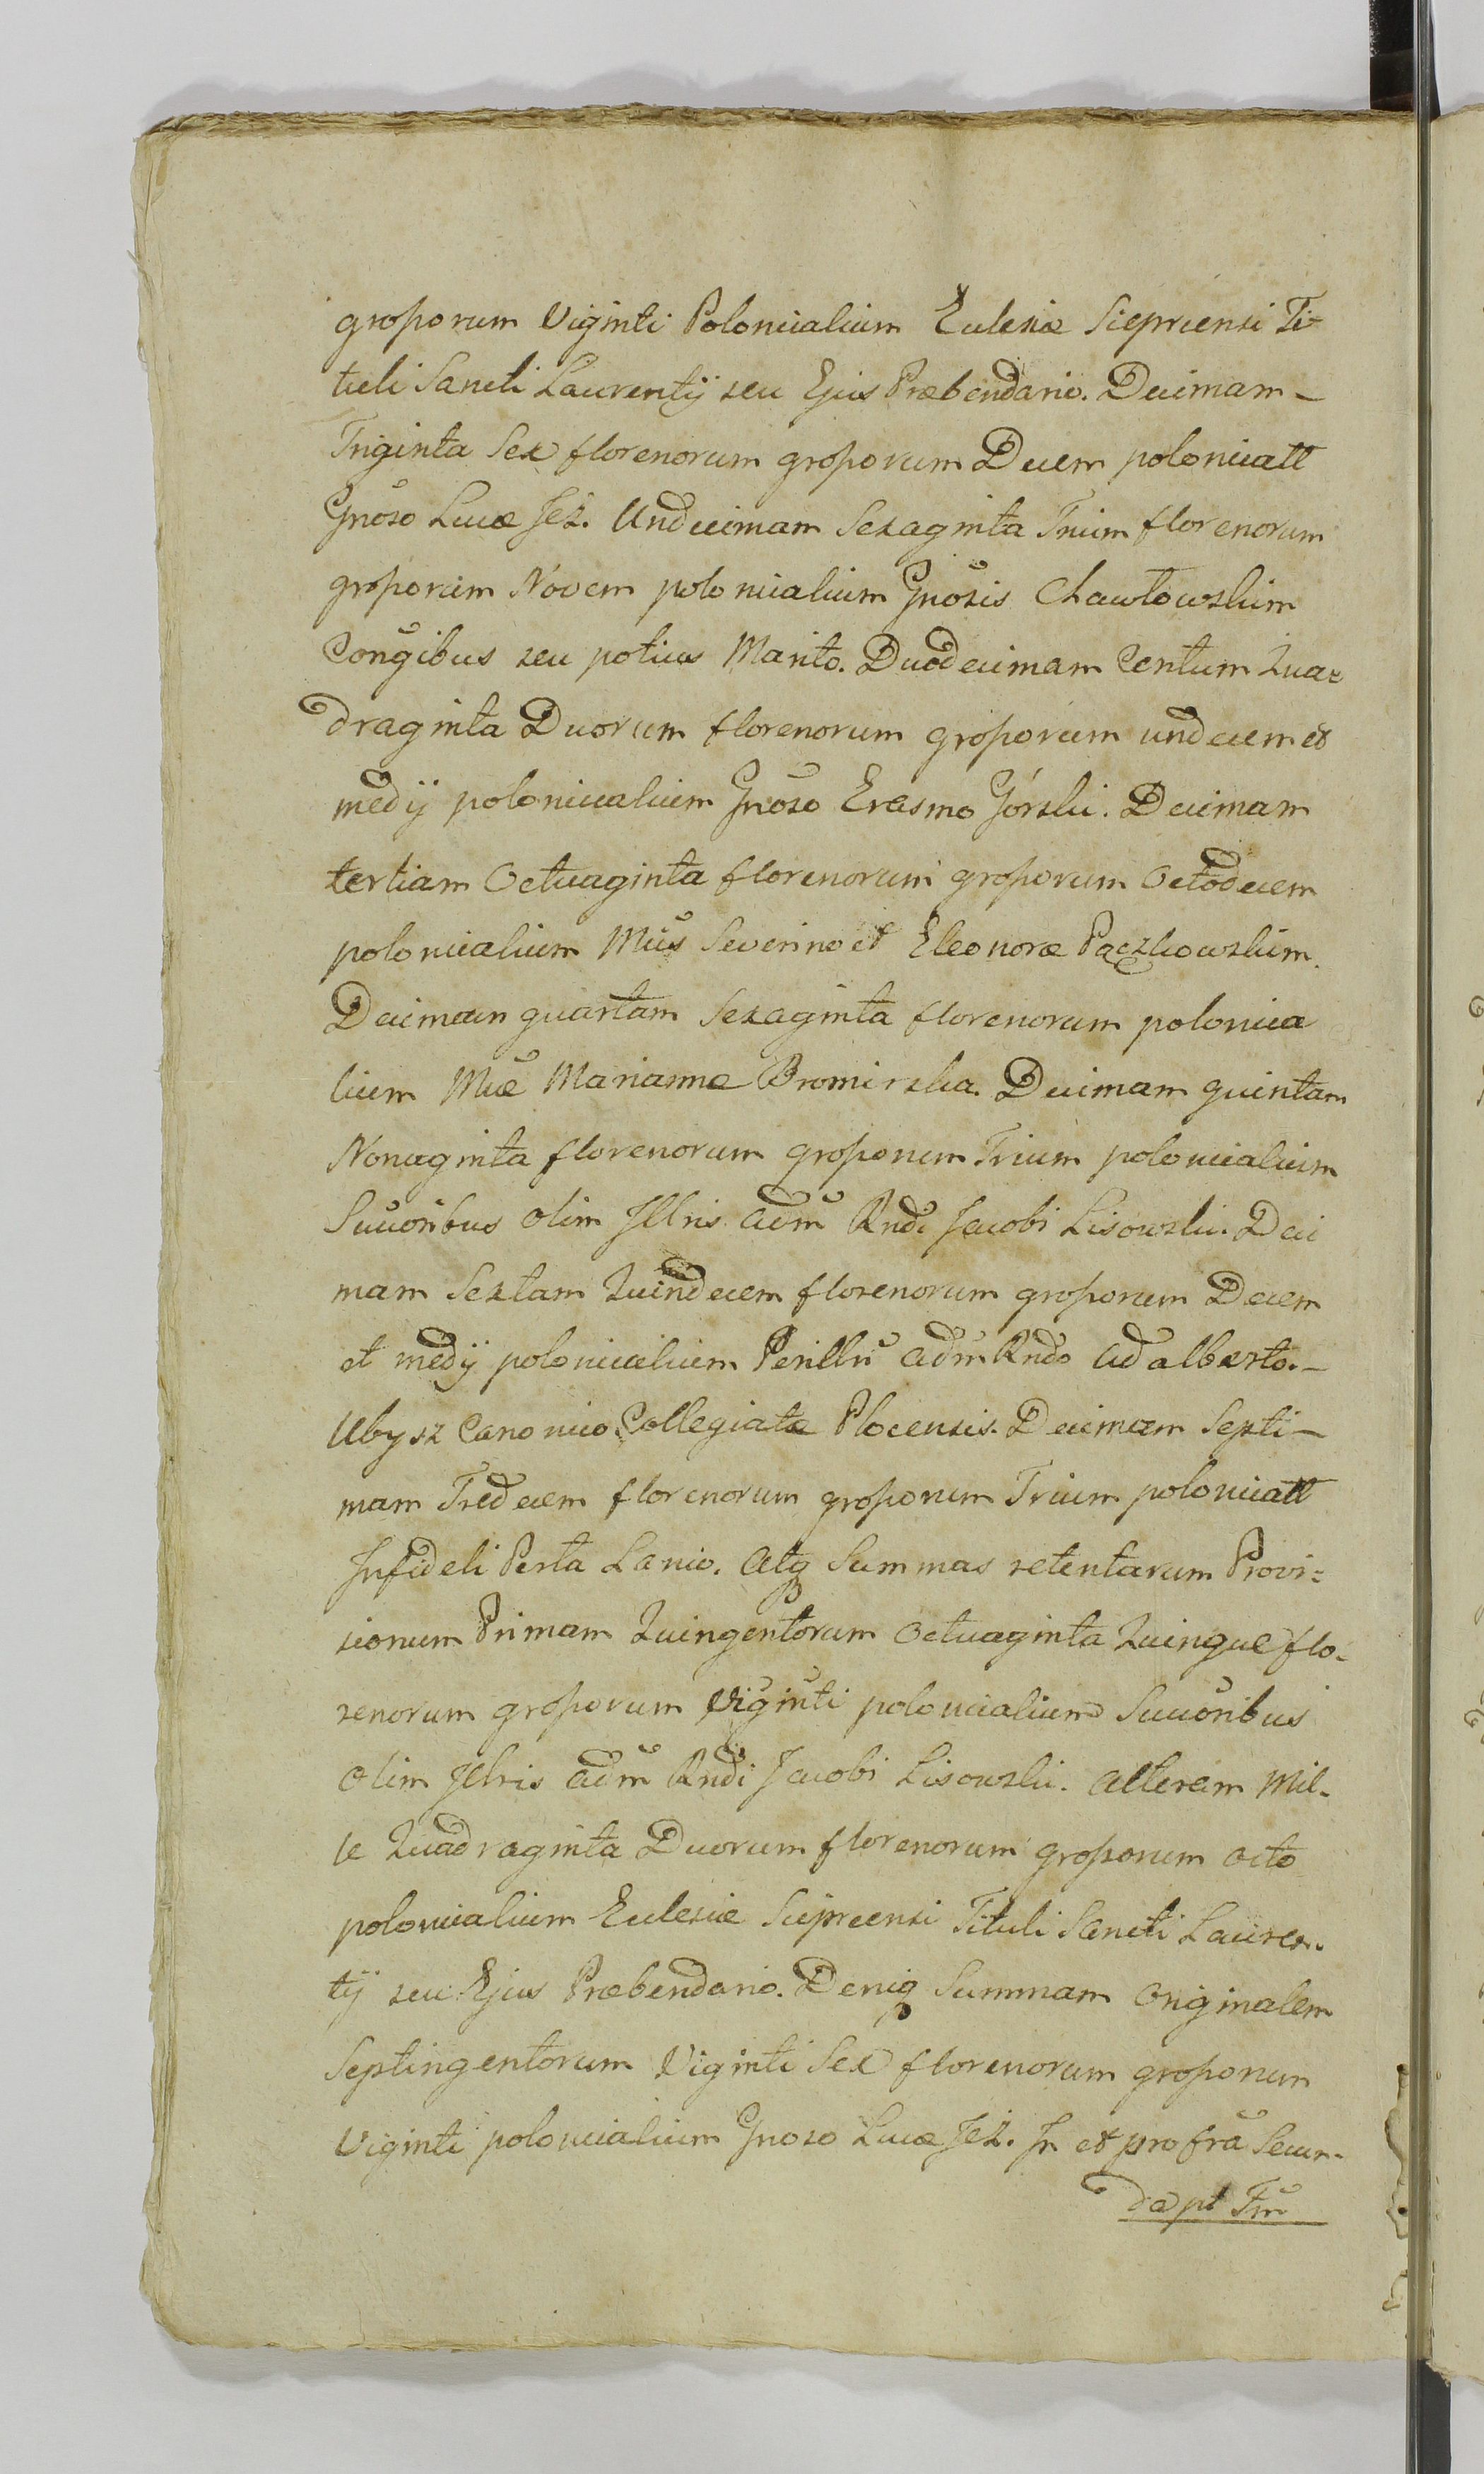 grossorum Viginti Polonicalium Ecclesiæ Sieprcensi Ti=
tuli Sancti Laurentij seu Ejus Præbendario. Decimam –
Triginta Sex florenorum grossorum Decem polonicall
Gnoso Lucæ Jeż. Undecimam Sexaginta Trium florenorum
grossorum Novem polonicalium Gnosis Chawłowskim
Conjgibus seu potius Marito. Duodecimam Centum Qua=
draginta Duorum florenorum grossorum undecem et
medij polonicalium Gnoso Erasmo Górski. Decimam
tertiam Octuaginta florenorum grossorum Octodecem
polonicalium Mcis Severino et Eleonoræ Pączkowskim.
Decimam quartam Sexaginta florenorum polonica
lium Mcæ Mariannæ Bromirska. Decimam quintam
Nonaginta florenorum grossorum Trium polonicalium
Succoribus olim Illris adm Rndi Jacobi Lisowski. Deci
mam Sextam Quindecem florenorum grossorum Decem
et medij polonicalium Perillri adm Rndo Adalberto. –
Ubysz Canonico Collegiatæ Plocensis. Decimam Septi –
mam Tredecem florenorum grossorum Trium polonicall
Infideli Perta Lanio. Atq Summas retentarum Provi=
sionum Primam Quingentorum Octuaginta Quinque flo-
renorum grossorum Viginti polonicalium Succoribus
olim Illris adm Rndi Jacobi Lisowski. Alteram Mil-
le Quadraginta Duorum florenorum grossorum octo
polonicalium Ecclesiæ Sieprcensi Tituli Sancti Lauren-
tij seu Ejus Præbendario. Deniq Summam Originalem
Septingentorum Viginti Sex florenorum grossorum
Viginti polonicalium Gnoso Lucæ Jeż. In et pro fra Secun-
da pt Trm